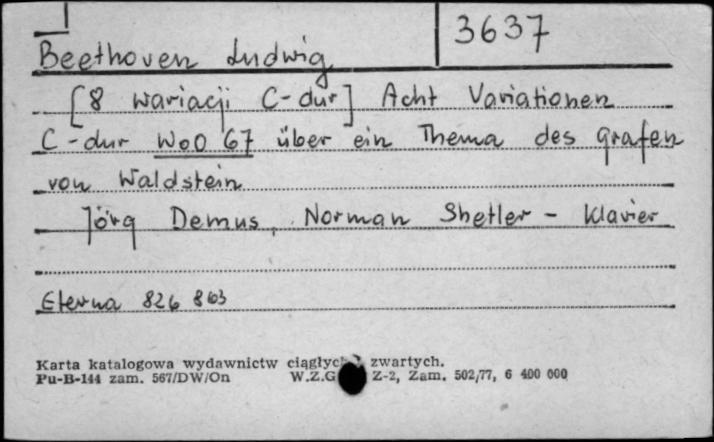 3637
Beethoven Ludwig
[8 wariacji C-dur] Acht Variationen
C-dur WoO 67 über ein Thema des Grafen
von Waldstein
Jörg Demus, Norman Shetler - Klavier
Eterna 826 863
Karta katalogowa wydawnictw ciągłyc zwartych.
Pu-B-144 zam. 567/DW/On W.Z.G Z-2, Zam. 502/77, 6 400 000